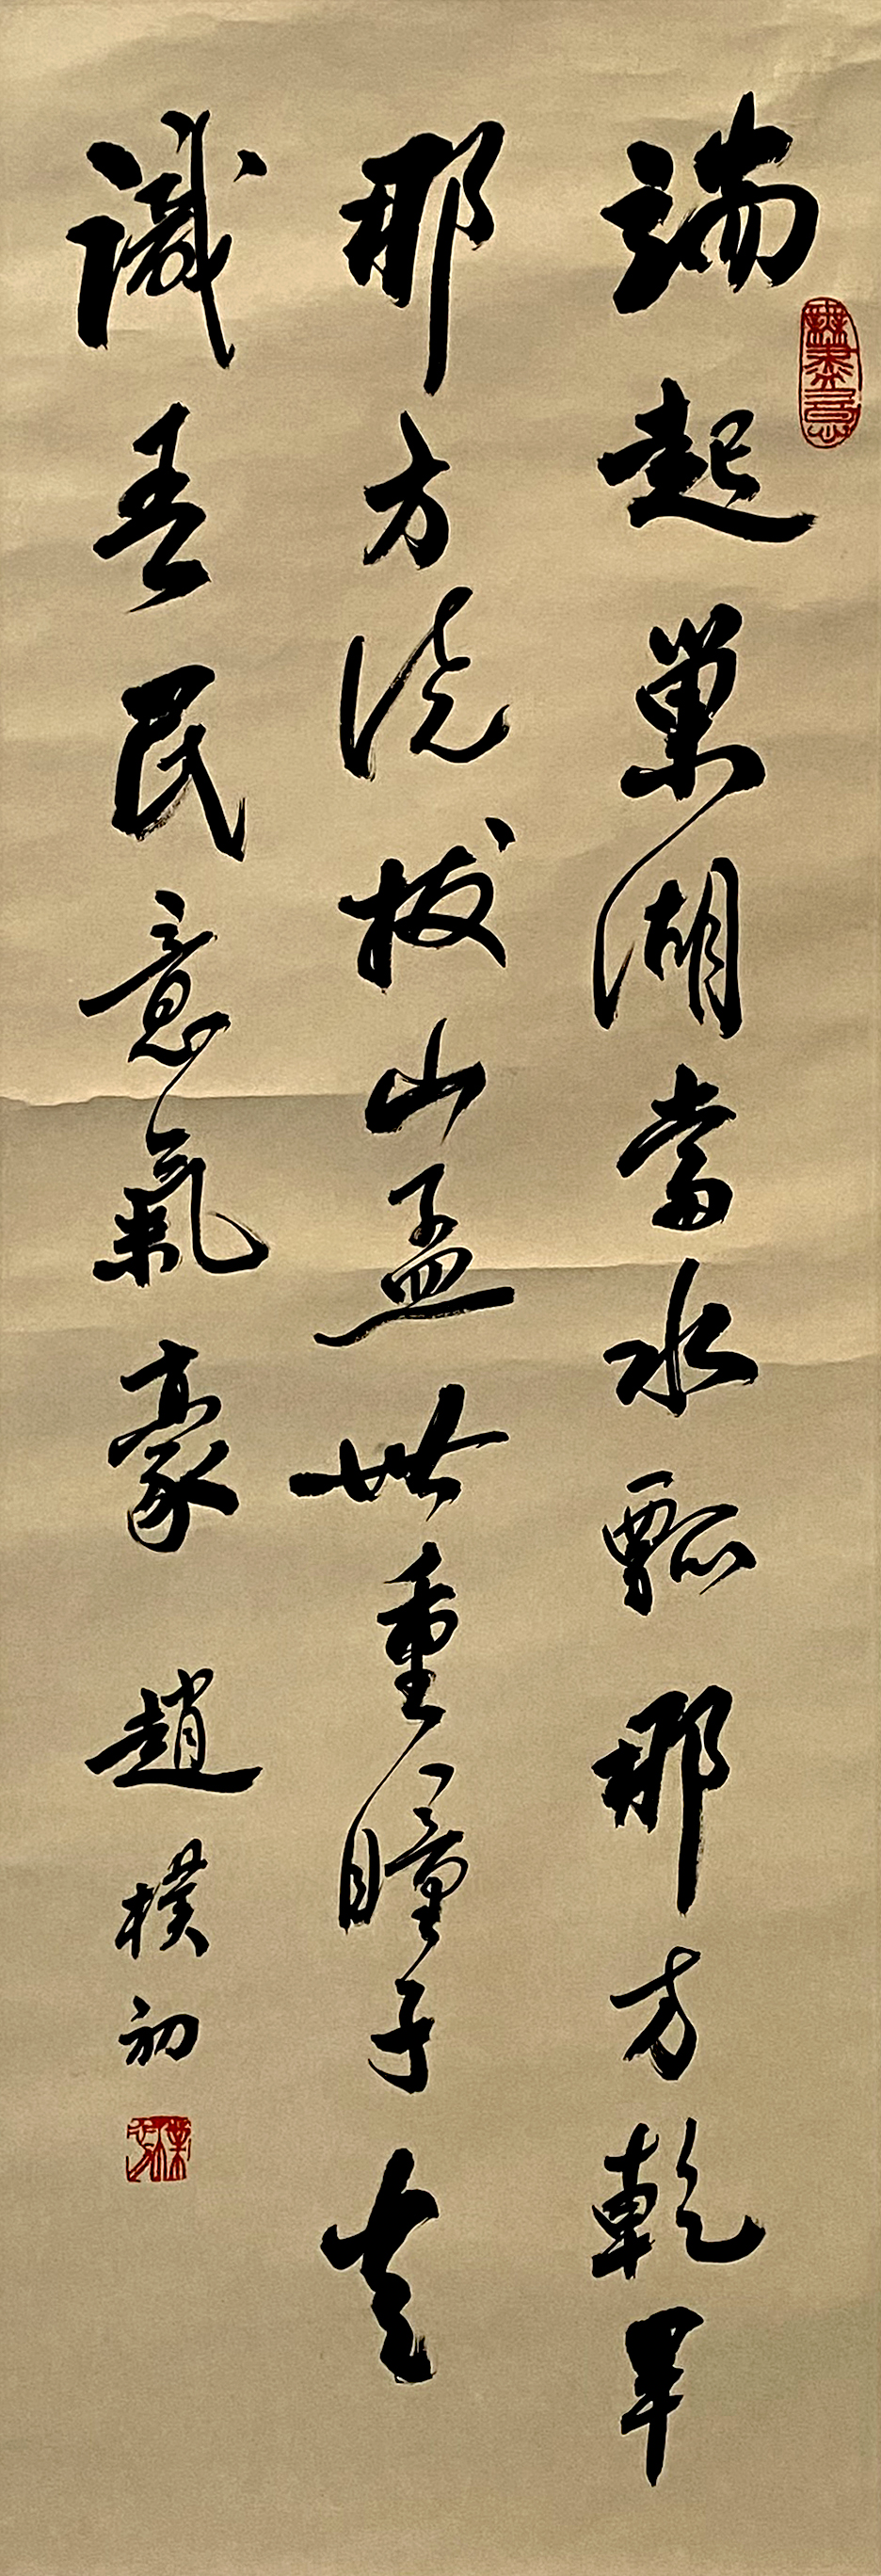 端起巢湖當水瓢那方乾旱
那方澆拔山孟世重瞳子
識吾民意氣豪 趙樸初